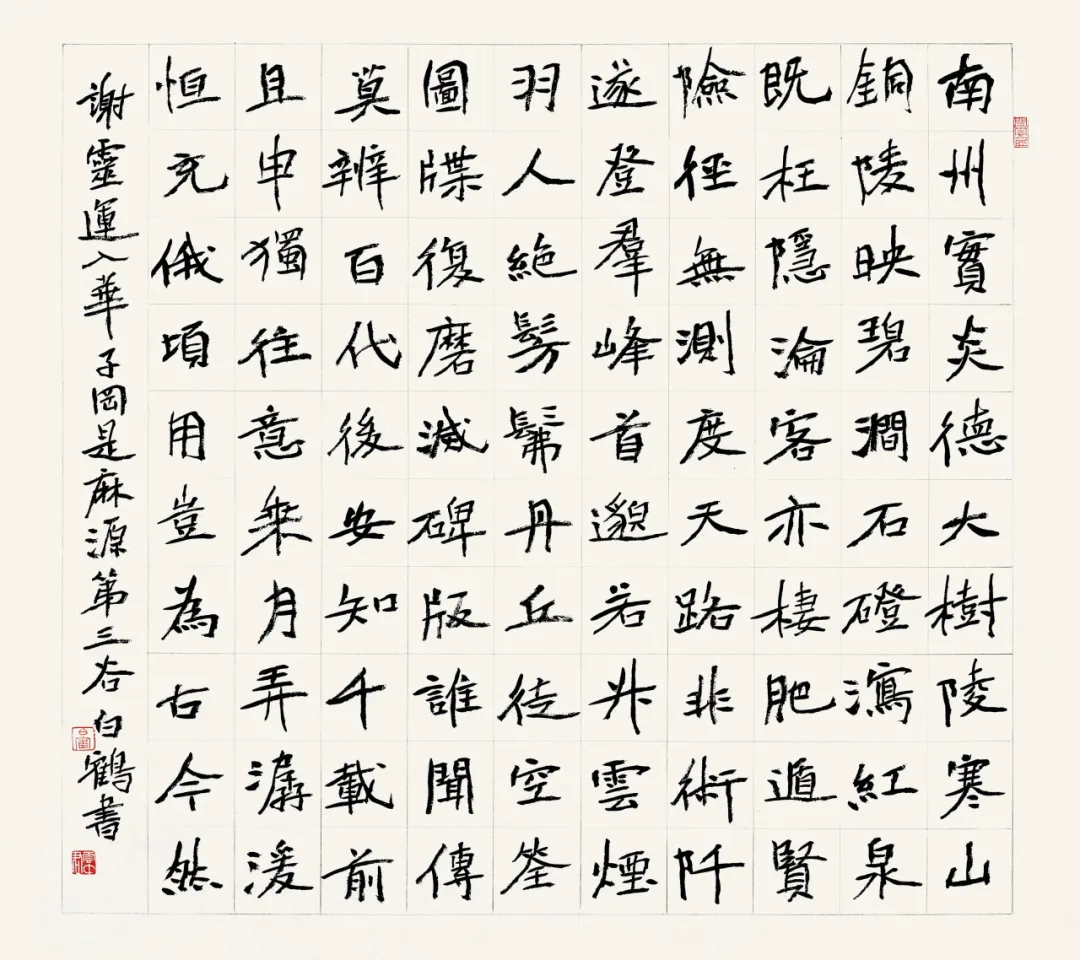 南州實炎德大樹陵寒山
銅陵映碧澗石磴瀉紅泉
既枉隱淪客亦棲肥遁賢
險徑無測度天路非術阡
遂登羣峰首邈若升雲煙
羽人絶髣髴丹丘徒空筌
圖牒復磨滅碑版誰聞傳
莫辨百代後安知千載前
且申獨往意乘月弄潺湲
恒充俄頃用豈為古今然
謝靈運入華子岡是麻源第三谷 白鶴書